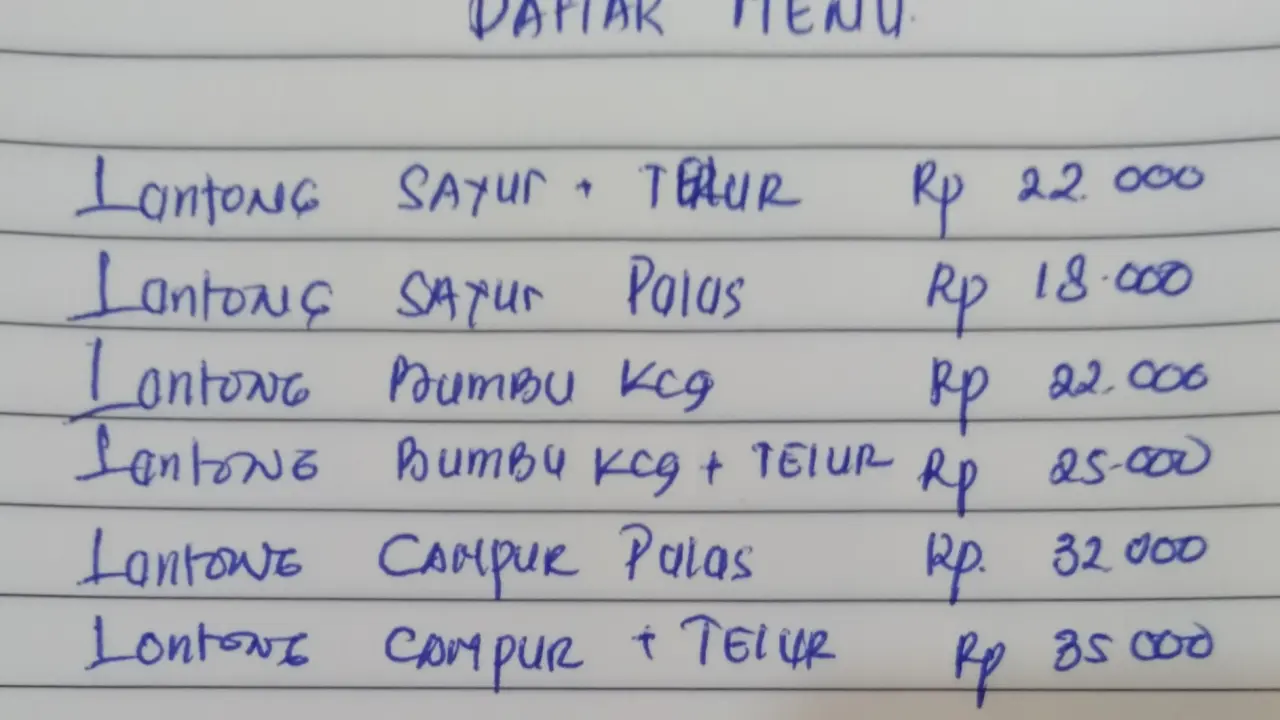 DAFTAR MENU
Lontong SAYUR + TELUR Rp 22.000
Lontong SAYUR Polos Rp 18.000
Lontong BUMBU Kcg Rp 22.000
Lontong BUMBU Kcg + TELUR Rp 25.000
Lontong CAMPUR Polos Rp. 32 000
Lontong CAMPUR + TELUR Rp 35 000